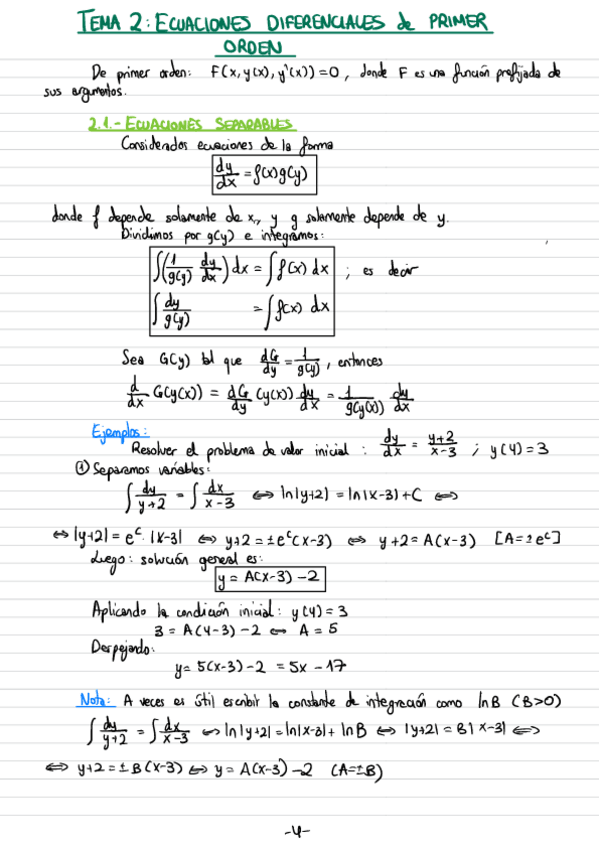 TEMA 2: ECUACIONES DIFERENCIALES de PRIMER
ORDEN
De primer orden: F(x, y(x), y'(x)) = 0, donde F es una función prefijada de
sus argumentos.
2.1.- ECUACIONES SEPARABLES
Considerados ecuaciones de la forma
dy/dx = f(x)g(y)
donde f depende solamente de x, y g solamente depende de y.
Dividimos por g(y) e integramos:
∫(1/g(y) dy/dx) dx = ∫f(x) dx ; es decir
∫dy/g(y) = ∫f(x) dx
Sea G(y) tal que dG/dy = 1/g(y), entonces
d/dx G(y(x)) = dG/dy (y(x)) dy/dx = 1/g(y(x)) dy/dx
Ejemplos:
Resolver el problema de valor inicial: dy/dx = y+2/x-3 ; y(4) = 3
① Separamos variables:
∫dy/y+2 = ∫dx/x-3 ⇔ ln|y+2| = ln|x-3| + C ⇔
⇔ |y+2| = e^C · |x-3| ⇔ y+2 = ±e^C(x-3) ⇔ y+2 = A(x-3) [A = ±e^C]
Luego: solución general es:
y = A(x-3) - 2
Aplicando la condición inicial: y(4) = 3
3 = A(4-3) - 2 ⇔ A = 5
Despejando:
y = 5(x-3) - 2 = 5x - 17
Nota: A veces es útil escribir la constante de integración como lnB (B>0)
∫dy/y+2 = ∫dx/x-3 ⇔ ln|y+2| = ln|x-3| + lnB ⇔ |y+2| = B|x-3| ⇔
⇔ y+2 = ±B(x-3) ⇔ y = A(x-3) - 2 (A=±B)
-4-